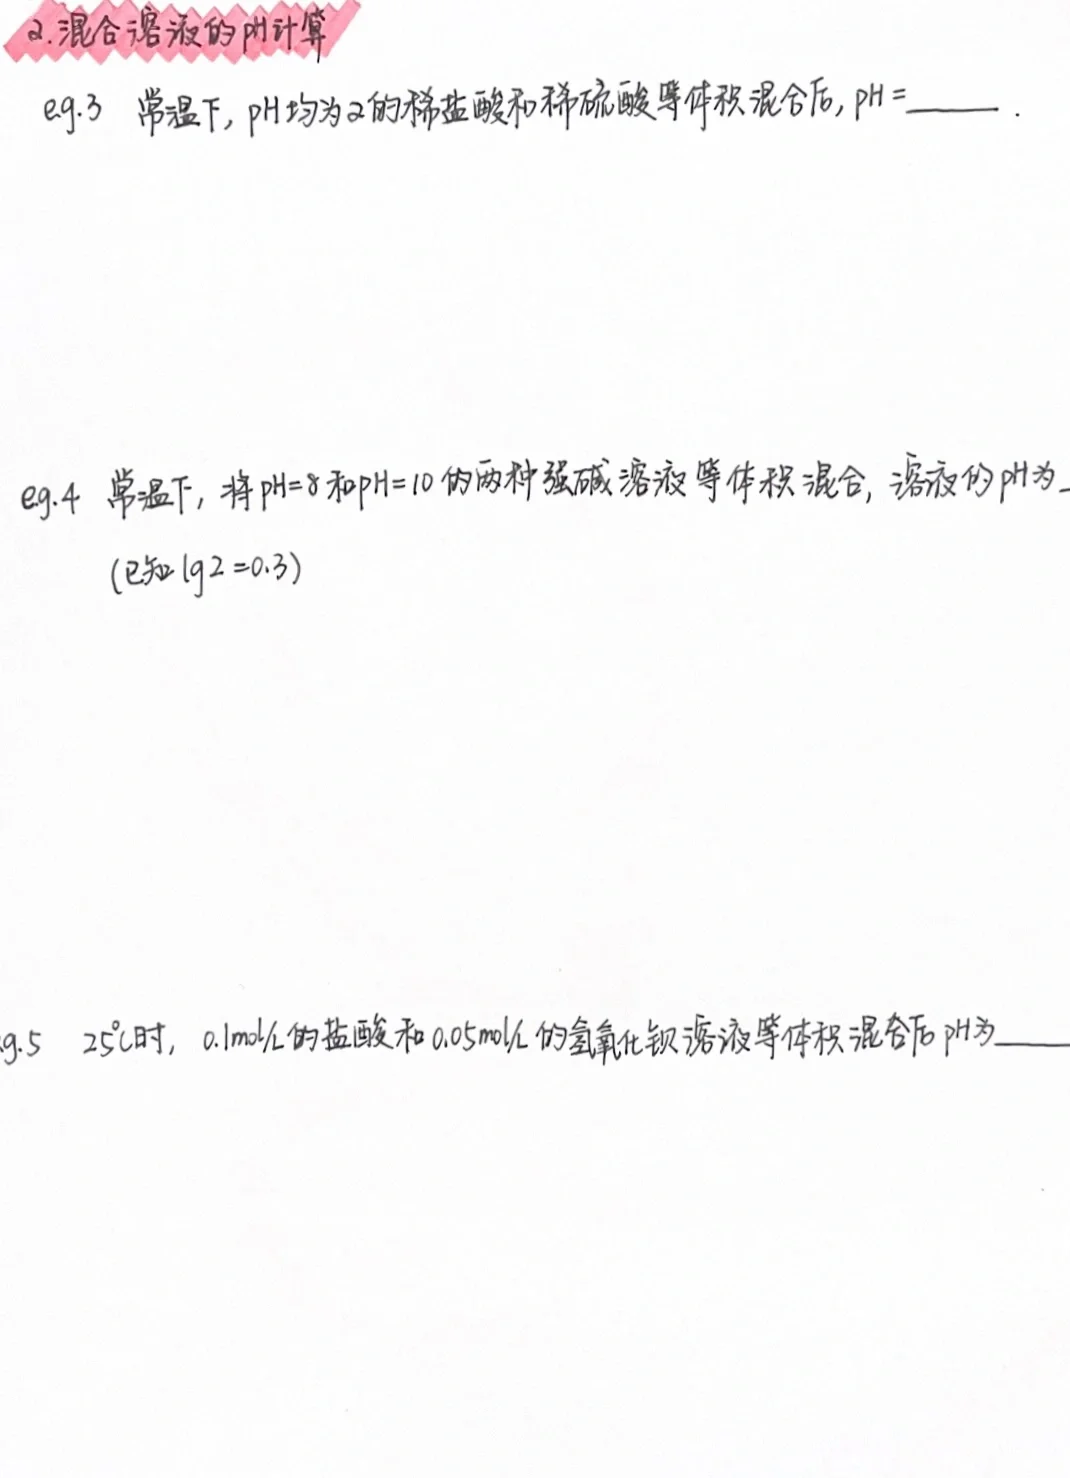 2.混合溶液的pH计算
eg.3 常温下,pH均为2的稀盐酸和稀硫酸等体积混合后,pH=______.
eg.4 常温下,将pH=8和pH=10的两种强碱溶液等体积混合,溶液的pH为_
(已知lg2=0.3)
g.5 25℃时,0.1mol/L的盐酸和0.05mol/L的氢氧化钡溶液等体积混合后pH为_____